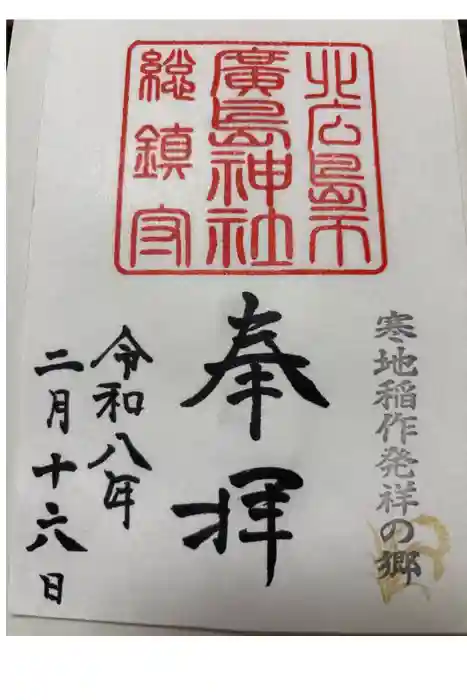 北広島市
廣島神社
総鎮守
寒地稲作発祥の郷
奉拝
令和八年
二月十六日